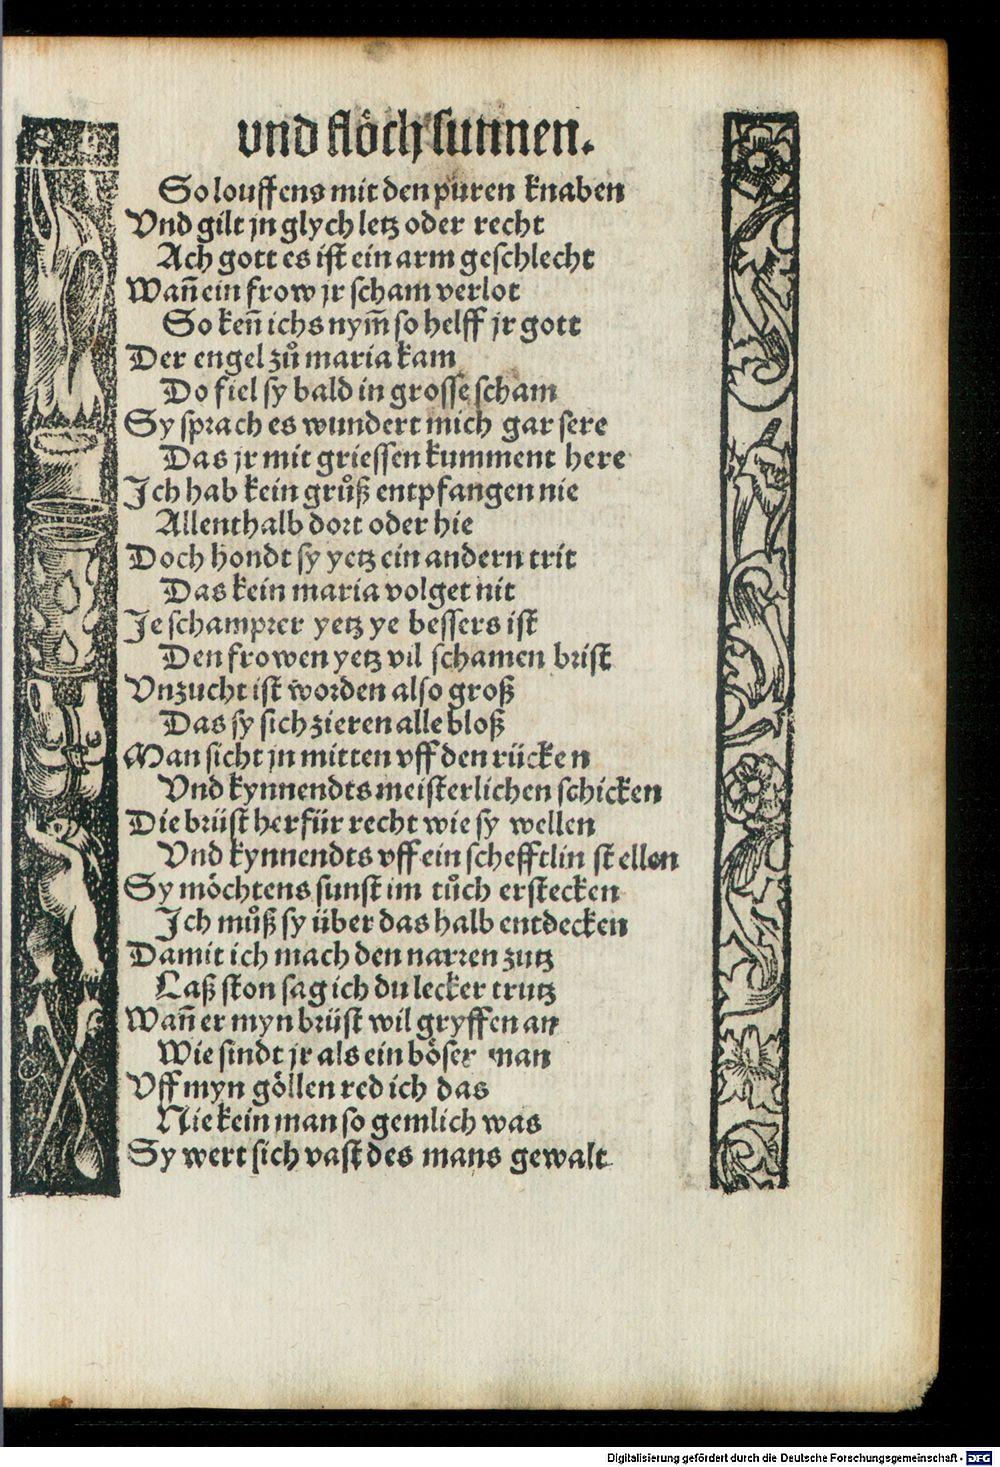 vnd flöch sunnen.
So louffens mit den puren knaben
Vnd gilt jn glych letz oder recht
Ach gott es ist ein arm geschlecht
Wañ ein frow jr scham verlot
So keñ ichs nym̃ so helff jr gott
Der engel zů maria kam
Do fiel sy bald in grosse scham
Sy sprach es wundert mich gar sere
Das jr mit griessen kumment here
Ich hab kein grůß entpfangen nie
Allenthalb dort oder hie
Doch hondt sy yetz ein andern trit
Das kein maria volget nit
Je schamprer yetz ye bessers ist
Den frowen yetz vil schamen brist
Vnzucht ist worden also groß
Das sy sich zieren alle bloß
Man sicht jn mitten vff den rücken
Vnd kynnendts meisterlichen schicken
Die brüst herfür recht wie sy wellen
Vnd kynnendts vff ein schefftlin stellen
Sy möchtens sunst im tůch erstecken
Ich můß sy über das halb entdecken
Damit ich mach den narren zutz
Laß ston sag ich du lecker trutz
Wañ er myn brüst wil gryffen an
Wie sindt jr als ein böser man
Vff myn göllen red ich das
Nie kein man so gemlich was
Sy wert sich vast des mans gewalt
Digitalisierung gefördert durch die Deutsche Forschungsgemeinschaft - DFG